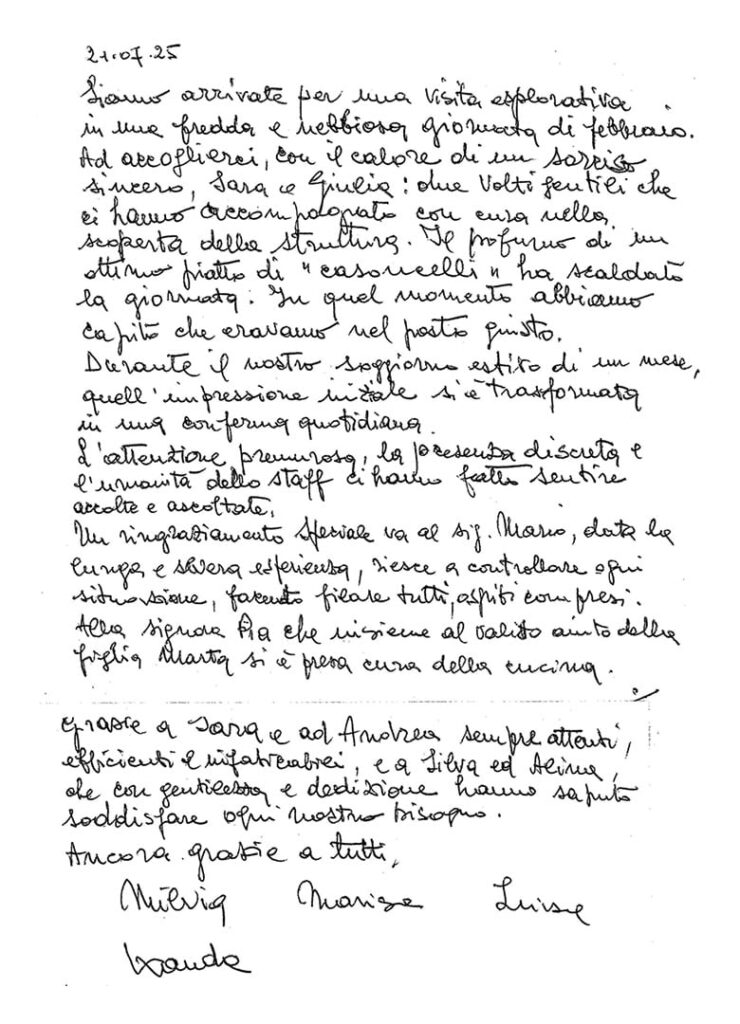 21.07.25
Siamo arrivate per una visita esplorativa
in una fredda e nebbiosa giornata di febbraio.
Ad accoglierci, con il calore di un sorriso
sincero, Sara e Giulia: due volti gentili che
ci hanno accompagnato con cura nella
scoperta della struttura. Il profumo di un
ottimo piatto di "casoncelli" ha scaldato
la giornata. In quel momento abbiamo
capito che eravamo nel posto giusto.
Durante il nostro soggiorno estivo di un mese,
quell'impressione iniziale si è trasformata
in una conferma quotidiana.
L'attenzione premurosa, la presenza discreta e
l'umanità dello staff ci hanno fatto sentire
accolte e ascoltate.
Un ringraziamento speciale va al sig. Mario, data la
lunga e esperienza, riesce a controllare ogni
situazione, facendo filare tutti, ospiti compresi.
Alla signora Pia che insieme al valido aiuto della
figlia Marta si è presa cura della cucina.
Grazie a Sara e ad Andrea sempre attenti,
efficienti e infaticabili, e a Silva ed
che con gentilezza e dedizione hanno saputo
soddisfare ogni nostro bisogno.
Ancora grazie a tutti,
Milvia Marisa Luisa
Wanda